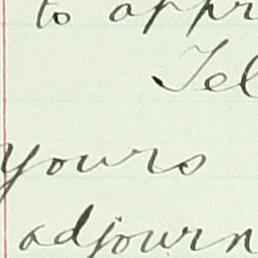 to appr
Tel
yours
adjourn